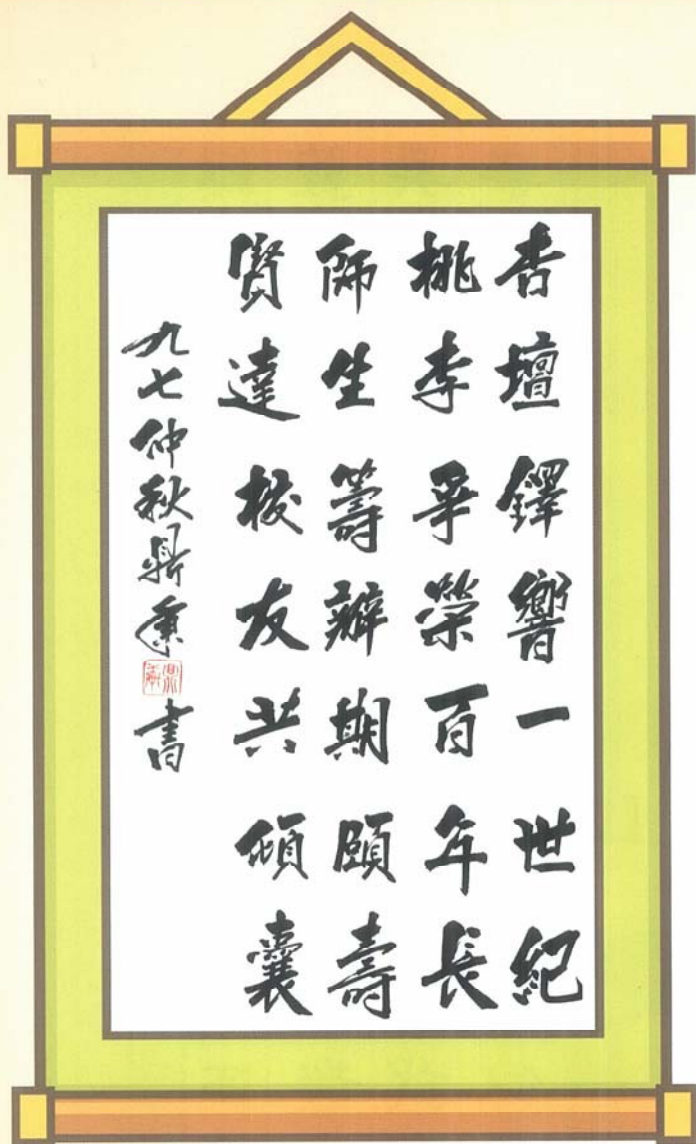 杏壇鐸響一世紀
桃李爭榮百年長
師生籌辦期頤壽
賢達校友共傾囊
九七仲秋鼎書